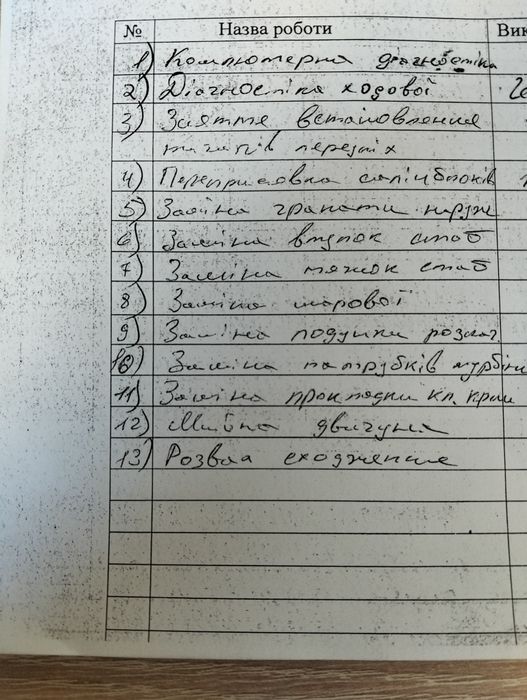 № Назва роботи Вик
1) Компютерна діагностіка
2) Діагностіка ходової
3) Зняття встановлення
тичагів передніх
4) Перепресовка салінблоків
5) Заміна гранати наруж
6) Заміна втулок стаб
7) Заміна тяжок стаб
8) Заміна шарової
9) Заміна подушки роздат.
10) Заміна патрубків турбіни
11) Заміна прокладки кл. криш
12) Мийка двигуна
13) Розвал сходження